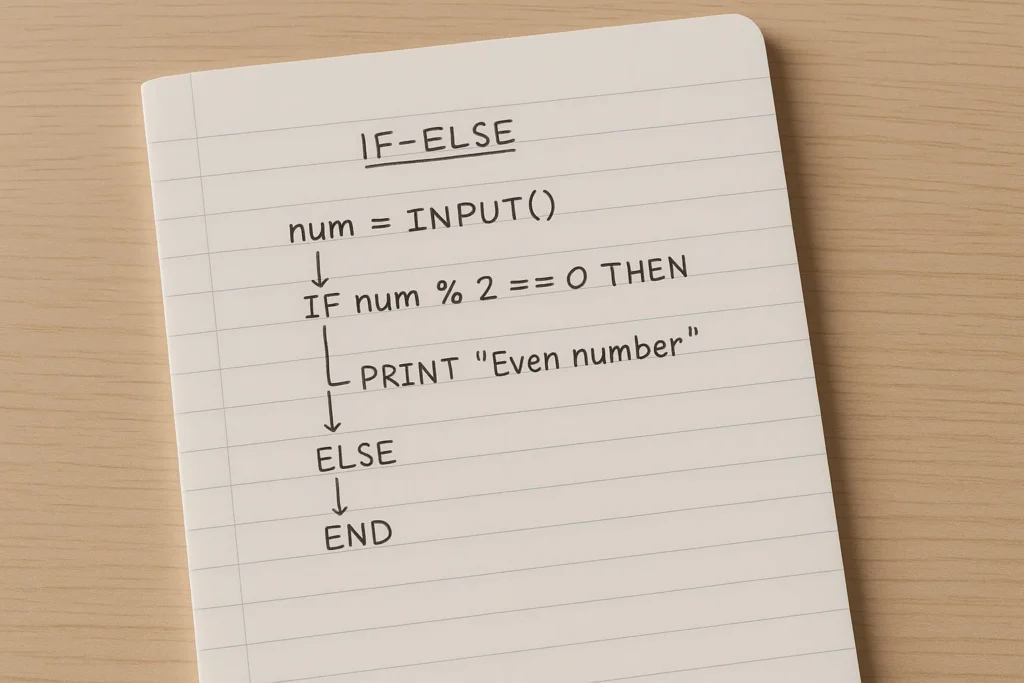 IF-ELSE
num = INPUT()
↓
IF num % 2 == 0 THEN
PRINT "Even number"
↓
ELSE
↓
END